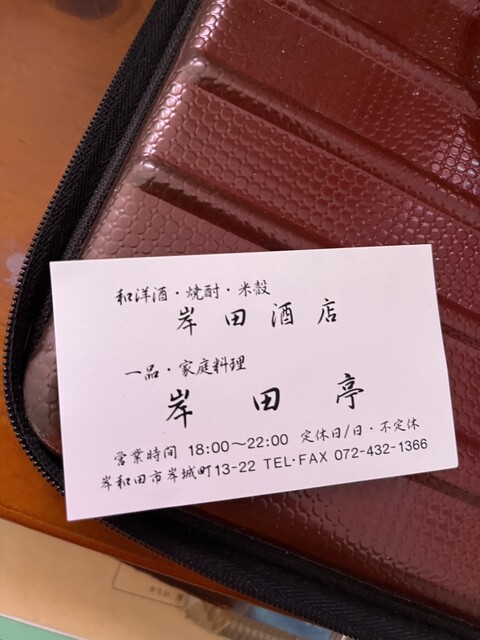 和洋酒・焼酎・米穀
岸田酒店
一品・家庭料理
岸田亭
営業時間 18:00〜22:00 定休日/日・不定休
岸和田市岸城町13-22 TEL・FAX 072-432-1366